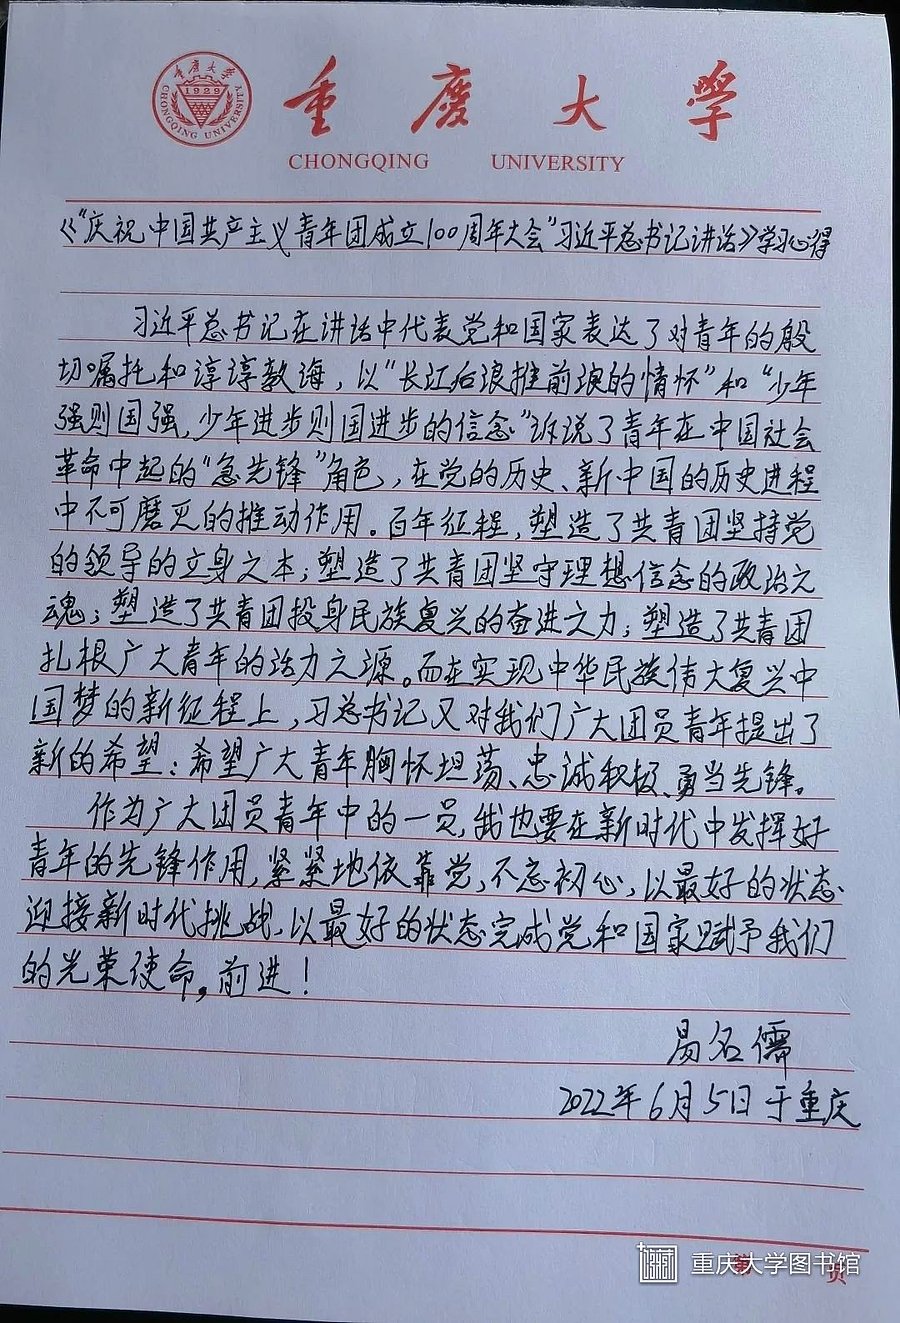 重庆大学
1929
CHONGQING UNIVERSITY
重庆大学
CHONGQING UNIVERSITY
《“庆祝中国共产主义青年团成立100周年大会”习近平总书记讲话》学习心得
习近平总书记在讲话中代表党和国家表达了对青年的殷
切嘱托和谆谆教诲，以“长江后浪推前浪的情怀”和“少年
强则国强，少年进步则国进步的信念”诉说了青年在中国社会
革命中起的“急先锋”角色，在党的历史、新中国的历史进程
中不可磨灭的推动作用。百年征程，塑造了共青团坚持党
的领导的立身之本；塑造了共青团坚守理想信念的政治之
魂；塑造了共青团投身民族复兴的奋进之力；塑造了共青团
扎根广大青年的活力之源。而在实现中华民族伟大复兴中
国梦的新征程上，习总书记又对我们广大团员青年提出了
新的希望：希望广大青年胸怀坦荡、忠诚积极、勇当先锋。
作为广大团员青年中的一员，我也要在新时代中发挥好
青年的先锋作用，紧紧地依靠党，不忘初心，以最好的状态
迎接新时代挑战，以最好的状态完成党和国家赋予我们
的光荣使命，前进！
易名儒
2022年6月5日于重庆
重庆大学图书馆
第 页